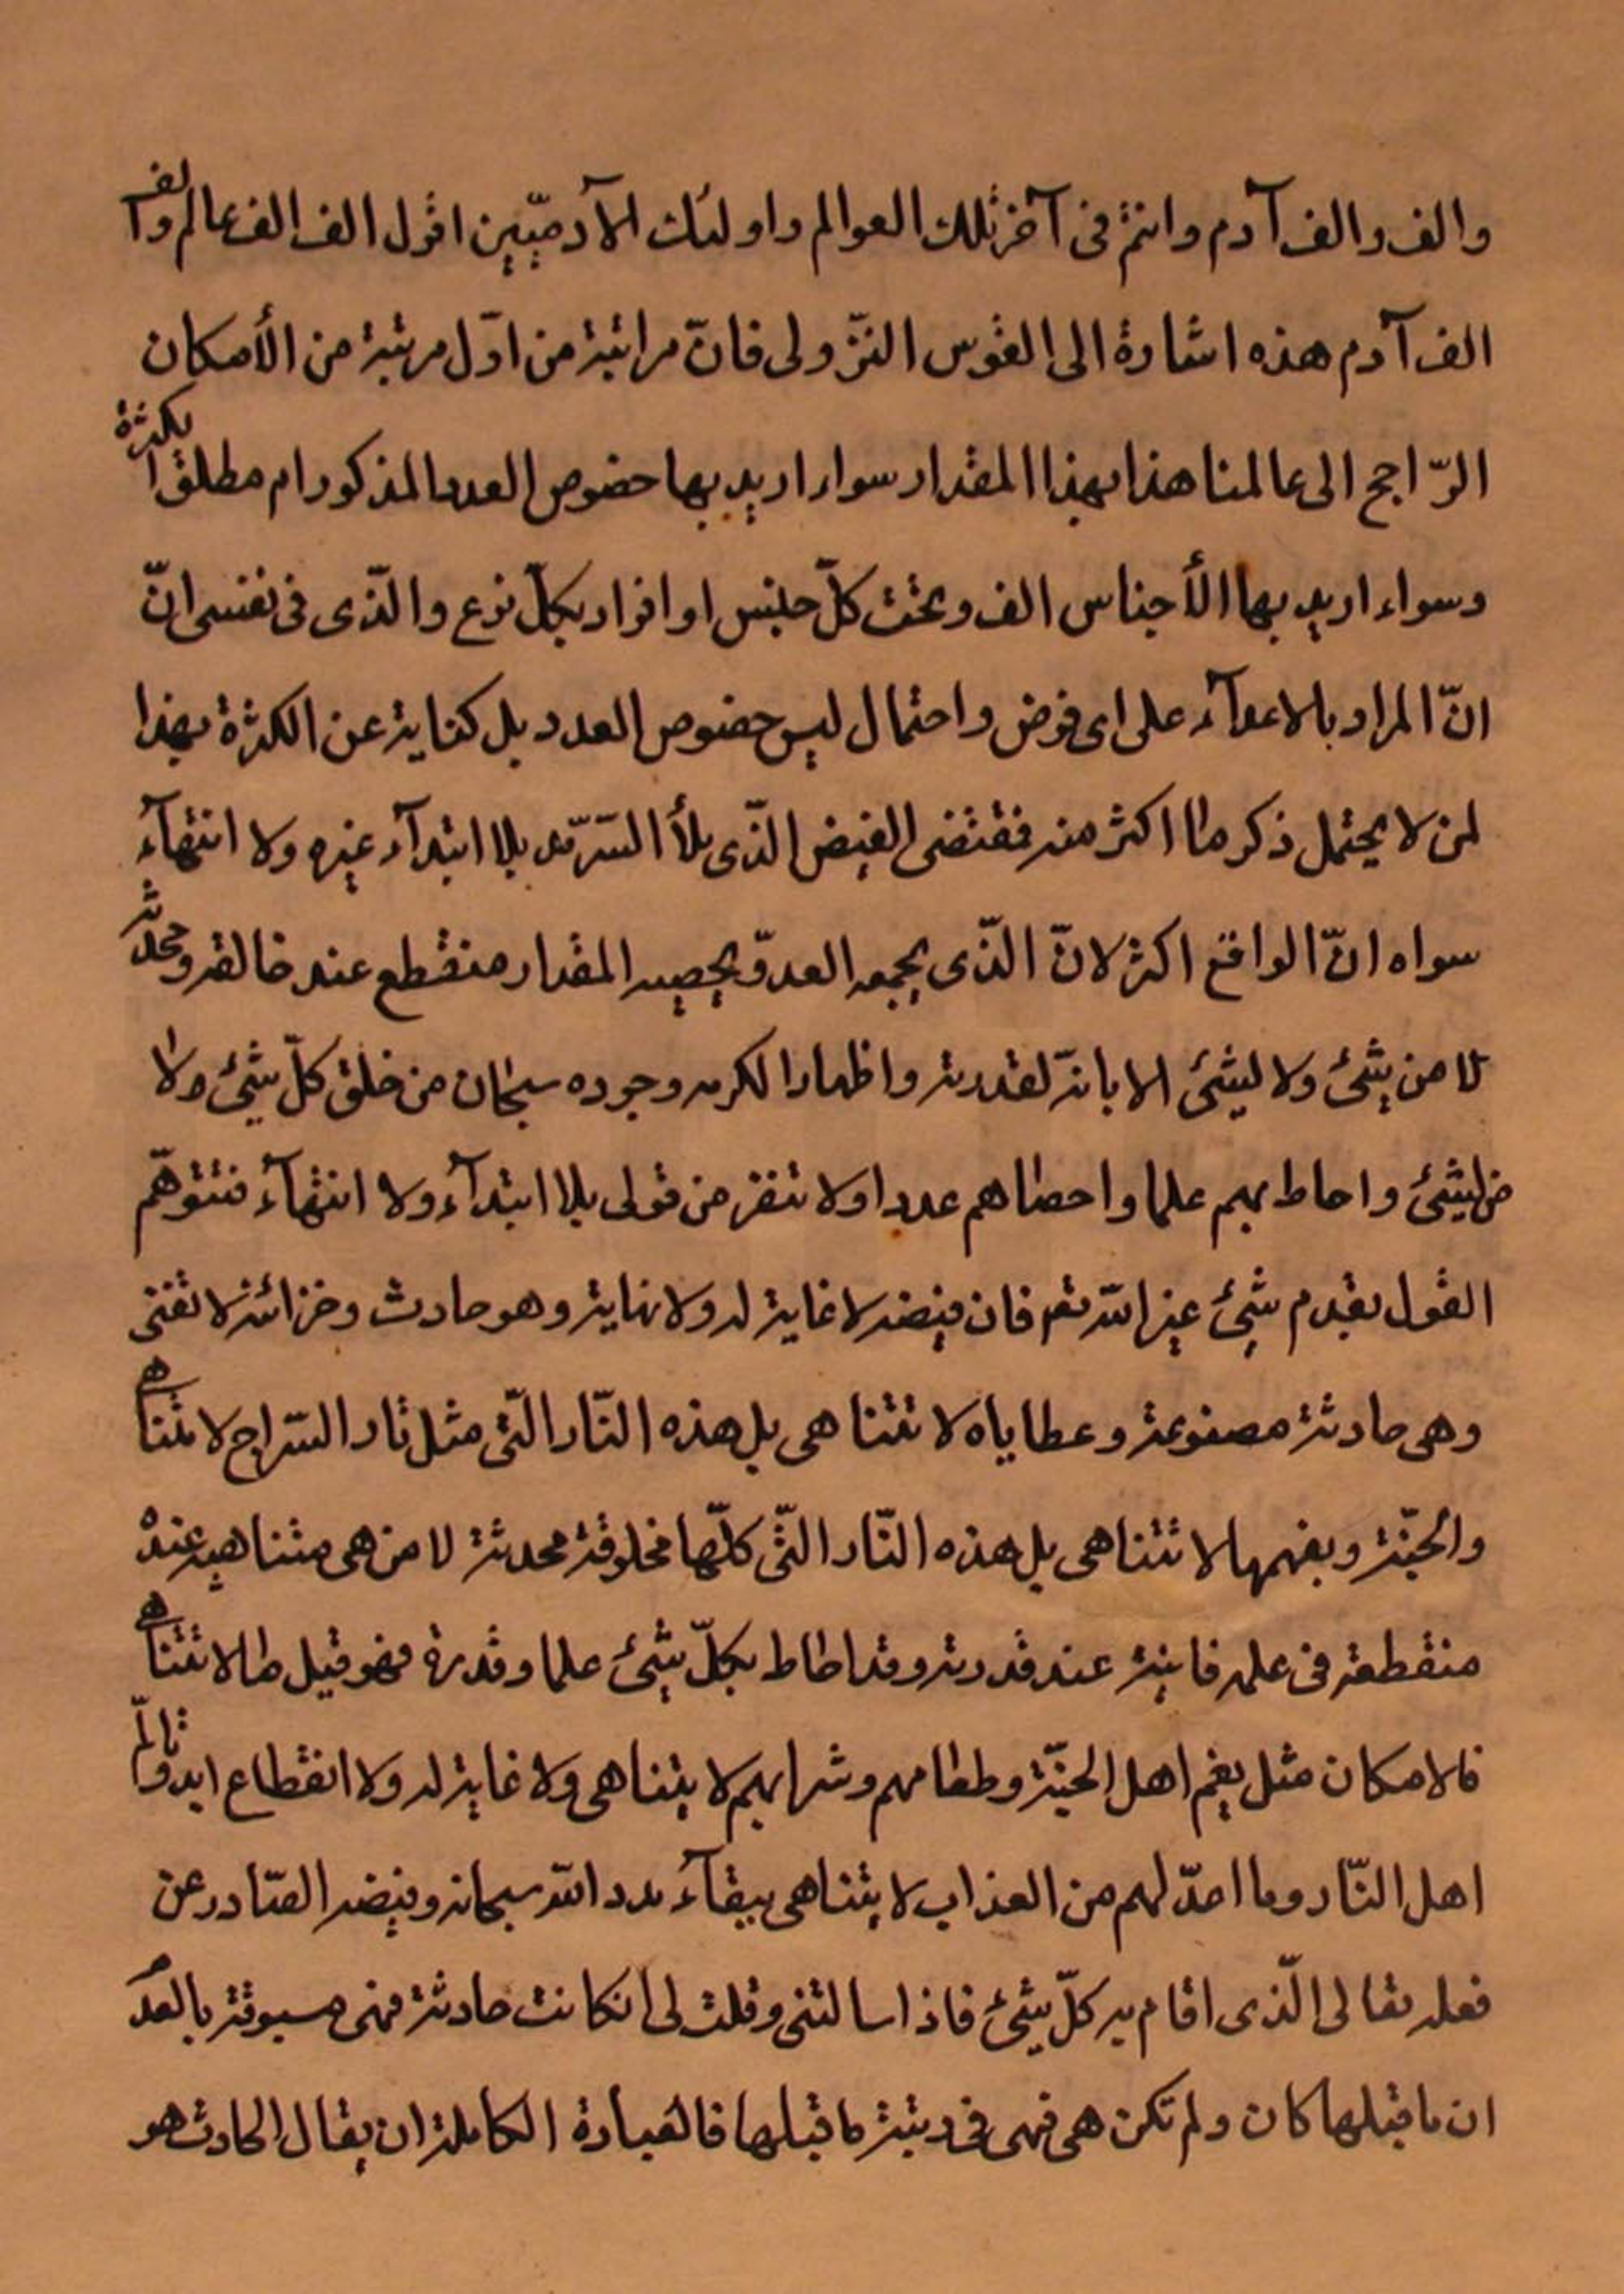 والف والف آدم وانتم فى آخر تلك العوالم واولئك الآدميّين اقول الف الف عالم والف
الف آدم هذه اشارة الى القوس النزّولى فانّ مراتبة من اوّل مرتبة من الأمكان
الرّاجح الى عالمنا هذا بهذا المقدار سواء اريد بها خصوص العدد المذكور ام مطلق الكثرة
وسواء اريد بها الأجناس الف وتحت كلّ جنس او افراد بكلّ نوع والذّى فى نفسى انّ
انّ المراد بالاعدآء على اى فرض واحتمال ليس خصوص العدد بل كناية عن الكثرة بهذا
لمن لا يحتمل ذكر ما اكثر منه فمقتضى الفيض الذّى بلأ السّرمد بلا ابتدآء غيره ولا انتهآء
سواه انّ الواقع اكثر لانّ الذّى يجمعه العدّ ويحصيه المقدار منقطع عند خالقه ومحدثه
لا من شئ ولا لشئ الا بانّه لقدرته واظهارا لكرمه وجوده سبحان من خلق كلّ شئ ولا
من لشئ واحاط بهم علما واحصاهم عددا ولا تنفر من قولى بلا ابتدآء ولا انتهآء فتتوهّم
القول بقدم شئ غير الله تعم فان فيضه لا غاية له ولا نهاية وهو حادث وخزائنه لا تفنى
وهى حادثة مصنوعة وعطاياه لا تتناهى بل هذه النّار التّى مثل نار السّراج لا تتناهى
والجنّة ونعيمها لا تتناهى بل هذه النّار التّى كلّها مخلوقة محدثة لا من هى متناهية عنده
منقطعة فى علمه فانية عند قدرته وقد احاط بكلّ شئ علما وقدرة فهو قبل ما لا تتناهى
فالامكان مثل نعيم اهل الجنّة وطعامهم وشرابهم لا يتناهى ولا غاية له ولا انقطاع ابد وتالّم
اهل النّار وما اعدّ لهم من العذاب لا يتناهى ببقآء مدد الله سبحانه وفيضه الصّادر عن
فعله تعالى الّذى اقام به كلّ شئ فاذا سالتنى وقلت لى انكانت حادثة فهى مسبوقة بالعدم
ان ما قبلها كان ولم تكن هى فهى فى رتبة ما قبلها فالعبارة الكاملة ان يقال الحادث هو